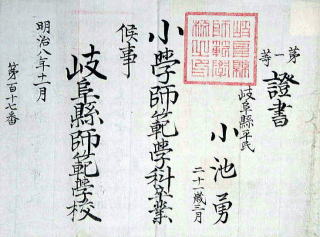 第
等
證書
岐阜縣平民
小池勇
二十一歳三月
小學師範學科卒業
候事
岐阜縣師範學校
明治八年十二月
第百十七番